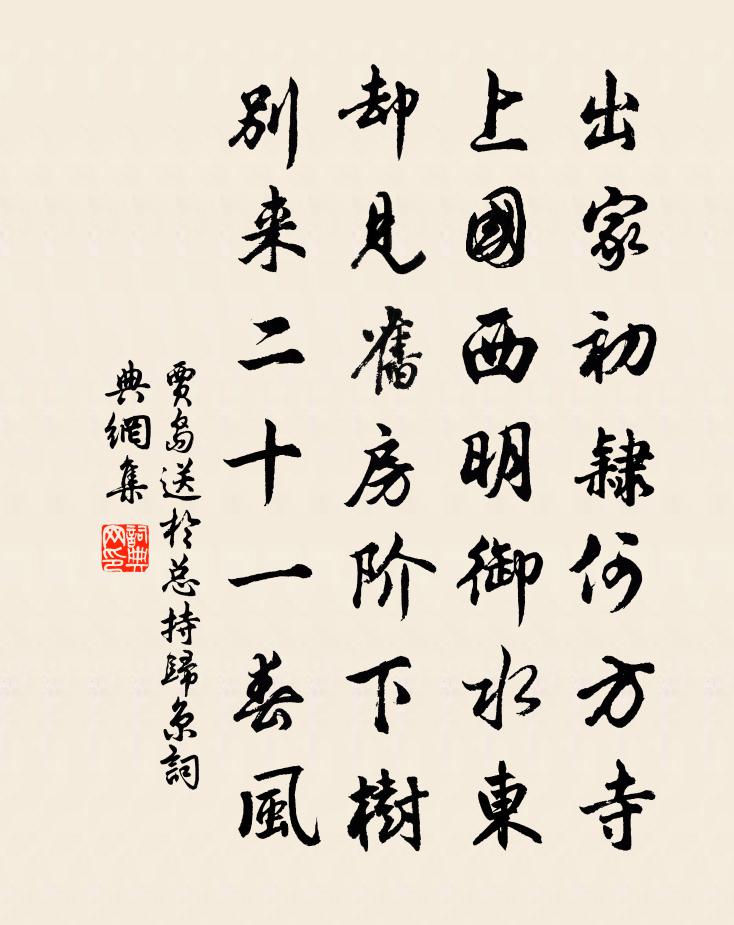 出家初隸何方寺
上國西明御水東
却見舊房阶下樹
別来二十一春風
賈島送於总持歸京詞
典網集
詞典
网印